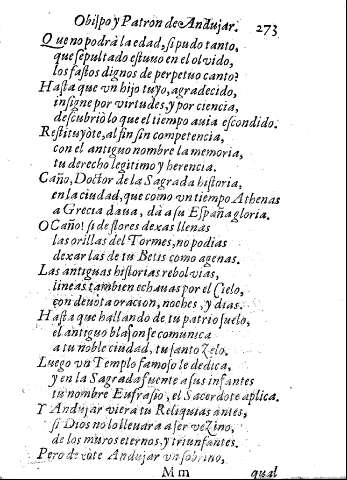 Obiſpo y Patron de Andujar. 273
Que no podrà la edad, ſi pudo tanto,
que ſepultado eſtuuo en el oluido,
los faſtos dignos de perpetuo canto?
Haſta que vn hijo tuyo, agradecido,
inſigne por virtudes, y por ciencia,
deſcubriò lo que el tiempo auia eſcondido.
Reſtituyòte, al fin ſin competencia,
con el antiguo nombre la memoria,
tu derecho legitimo y herencia.
Caño, Doctor de la Sagrada hiſtoria,
en la ciudad, que como vn tiempo Athenas
a Grecia daua, dà a ſu Eſpaña gloria.
O Caño! ſi de flores dexas llenas
las orillas del Tormes, no podias
dexar las de tu Betis como agenas.
Las antiguas hiſtorias reboluias,
lineas tambien echauas por el Cielo,
con deuota oracion, noches, y dias.
Haſta que hallando de tu patrio ſuelo,
el antiguo blaſon ſe comunica
a tu noble ciudad, tu ſanto Zelo.
Luego vn Templo famoſo le dedica,
y en la Sagrada fuente a ſus infantes
tu nombre Eufraſio, el Sacerdote aplica.
Y Andujar viera tu Reliquias antes,
ſi Dios no lo lleuara a ſer veZino,
de los muros eternos, y triunfantes.
Pero Andujar vn ſobrino,
M m qual